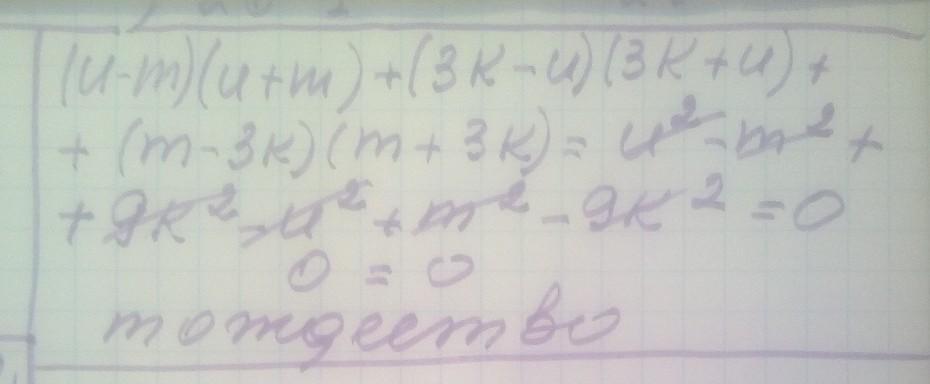 (u-m)(u+m)+(3k-u)(3k+u)+
+(m-3k)(m+3k)=u²-m²+
+9k²-u²+m²-9k²=0
0=0
тождество